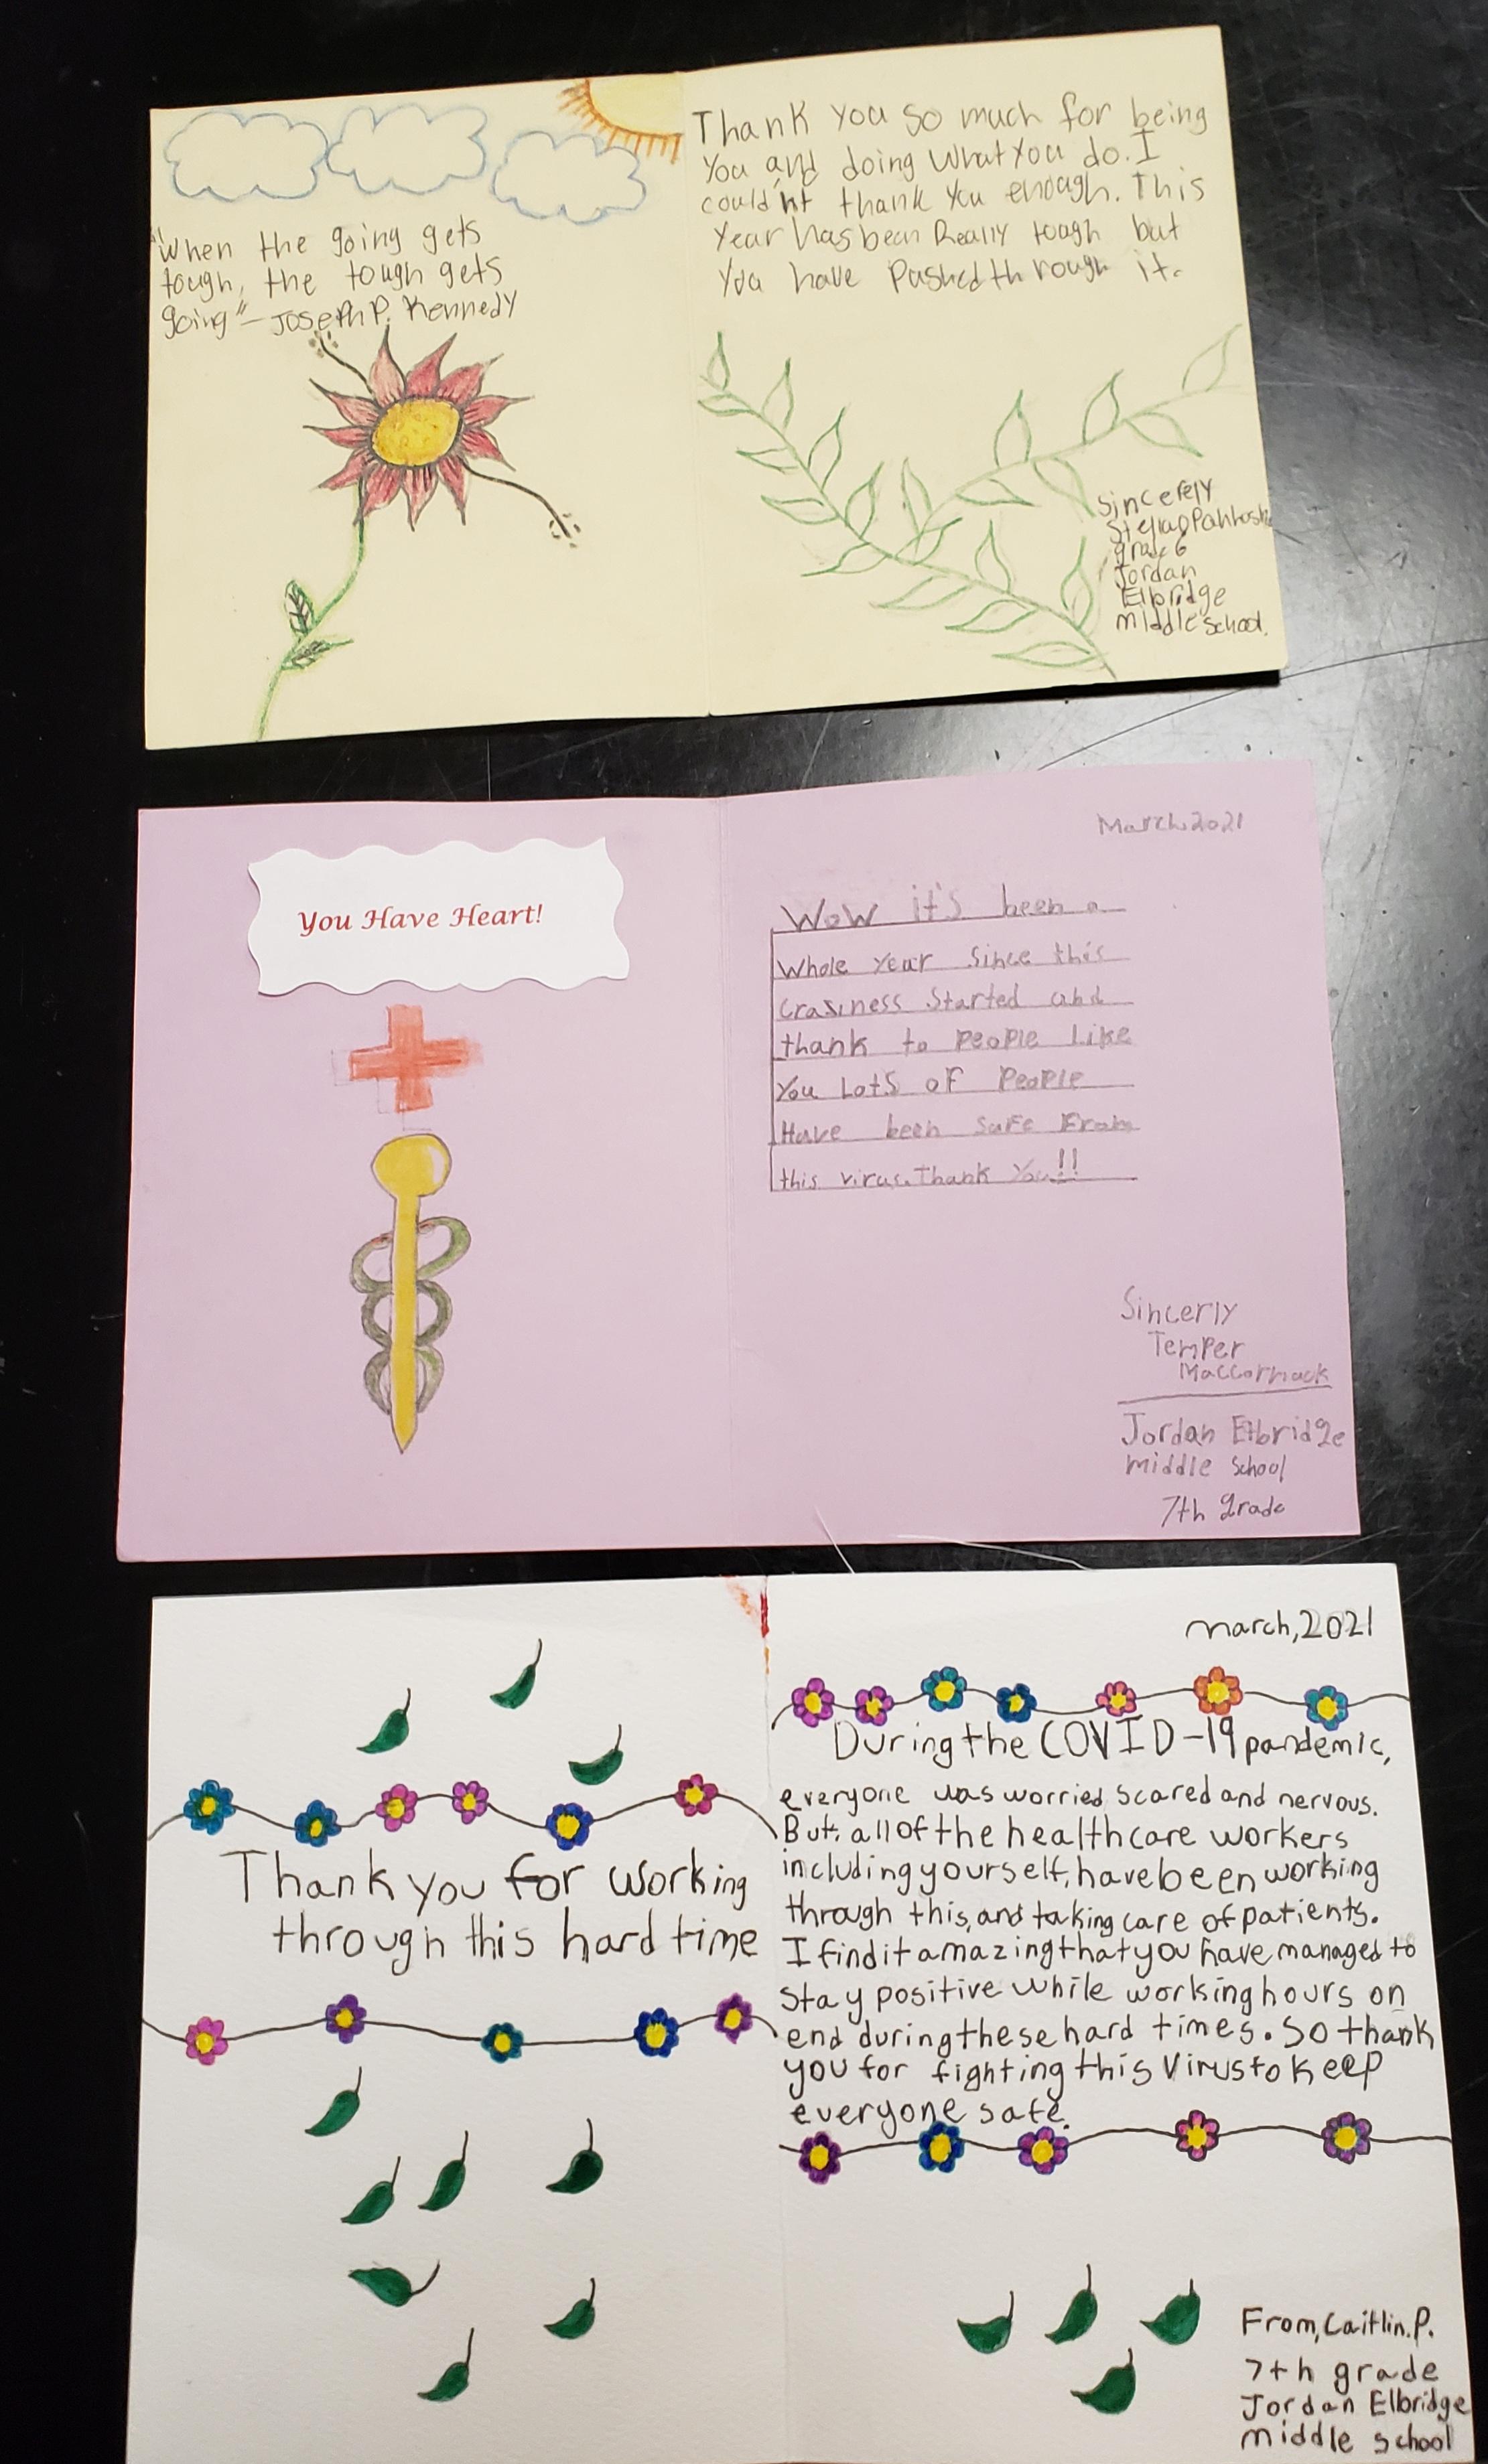 "When the going gets
tough, the tough gets
going" - Joseph P. Kennedy
Thank you so much for being
you and doing what you do. I
could'nt thank you enough. This
year has been Really tough but
you have Pushed through it.
Sincerely
grade 6
Jordan
Elbridge
middle school.
You Have Heart!
March, 2021
Wow it's been a
Whole year since this
crasiness started and
thank to people Like
You Lots of People
Have been safe From
this virus. Thank You!!
Sincerly
Temper
MacCormack
Jordan Elbridge
middle school
7th grade
Thank you for working
through this hard time
march, 2021
During the COVID-19 pandemic,
everyone was worried scared and nervous.
But, all of the healthcare workers
including yourself, have been working
through this, and taking care of patients.
I find it amazing that you have managed to
stay positive while working hours on
end during these hard times. So thank
you for fighting this Virus to keep
everyone safe.
From, Caitlin. P.
7th grade
Jordan Elbridge
middle school